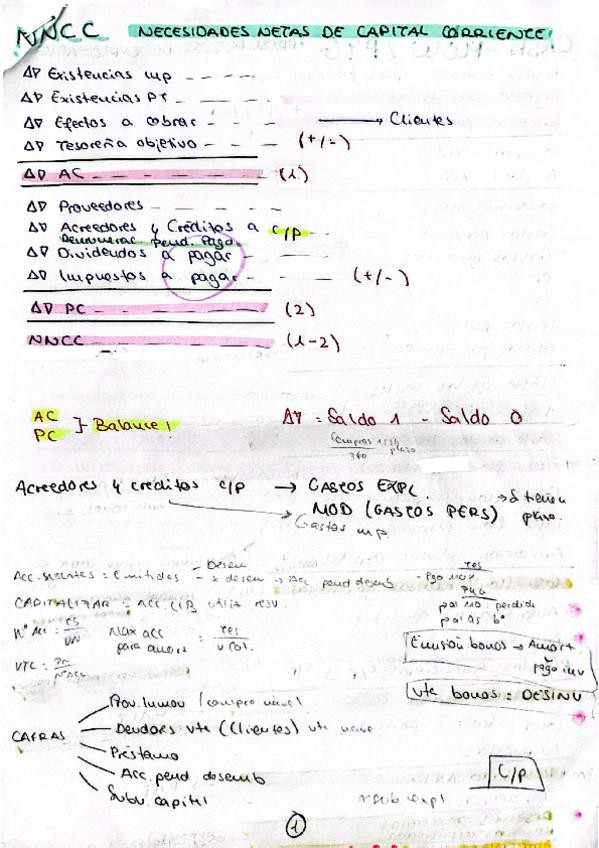 NNCC NECESIDADES NETAS DE CAPITAL CORRIENTE
Δ∇ Existencias mp
Δ∇ Existencias PT
Δ∇ Efectos a cobrar → Clientes
Δ∇ Tesorería objetivo (+/-)
Δ∇ AC (1)
Δ∇ Proveedores
Δ∇ Acreedores y Créditos a c/p
Remunerac. pend. Pago
Δ∇ Dividendos a pagar
Δ∇ Impuestos a pagar (+/-)
Δ∇ PC (2)
NNCC (1-2)
AC
PC ] Balance! Δ∇ = Saldo 1 - Saldo 0
360 plazo
Acreedores y créditos c/p → GASTOS EXPL
MOD (GASTOS PERS) → Si tienen plazo.
Gastos mp
= Emitidas - x desem → Acc pend desemb
CAPITALIZAR = Acc. LIB utiliz resv.
Nº Acc =
Max acc para amort =
Emisión bonos → Amort.
pago inv
vta bonos = DESINV
CAFRAS
Prov. Inmov (compro nave)
Deudores vta (Clientes) vta nave
Préstamo
Acc. pend desemb
Subv. capital
C/p
1